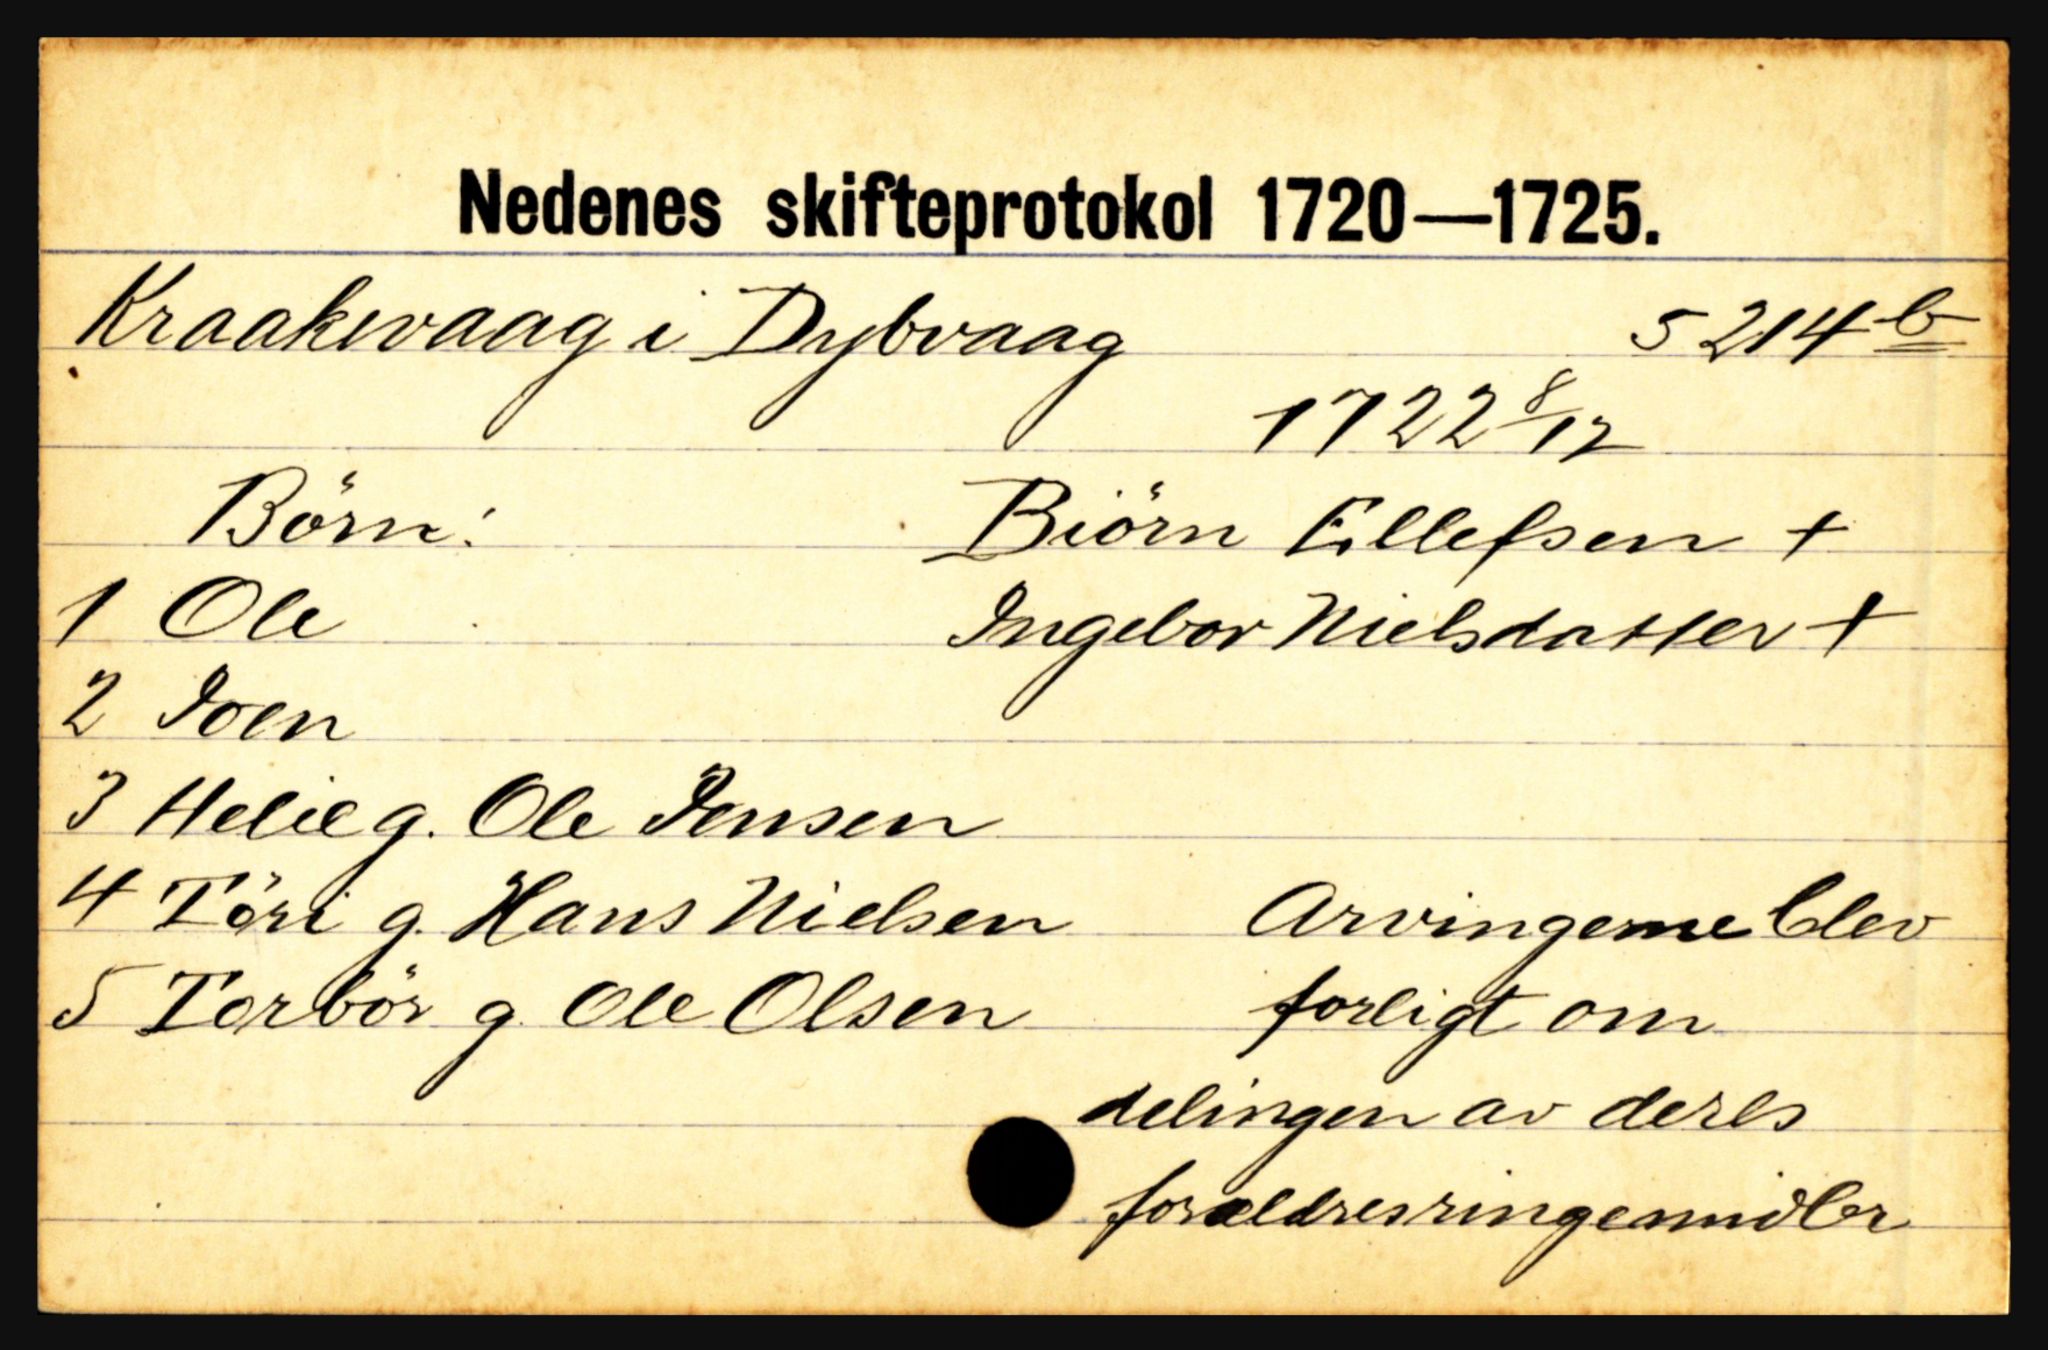 Nedenes skifteprotokol 1720—1725.
Kraakevaag i Dybvaag 5 214 b
1722 8/12
Börn: Biörn Ellefsen +
1 Ole Ingebor Nielsdatter +
2 Joen
3 Helie g. Ole Jensen
4 Töri g. Hans Nielsen Arvingerne blev
5 Torbör g. Ole Olsen forligt om
delingen av deres
forældres ringe midler